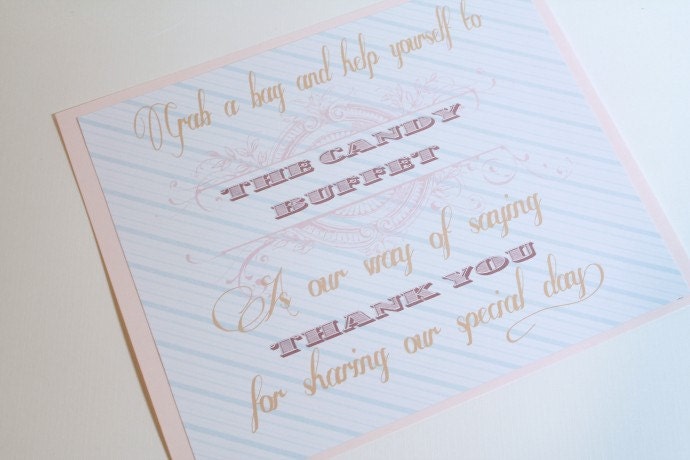 Grab a bag and help yourself to
THE CANDY
BUFFET
As our way of saying
THANK YOU
for sharing our special day